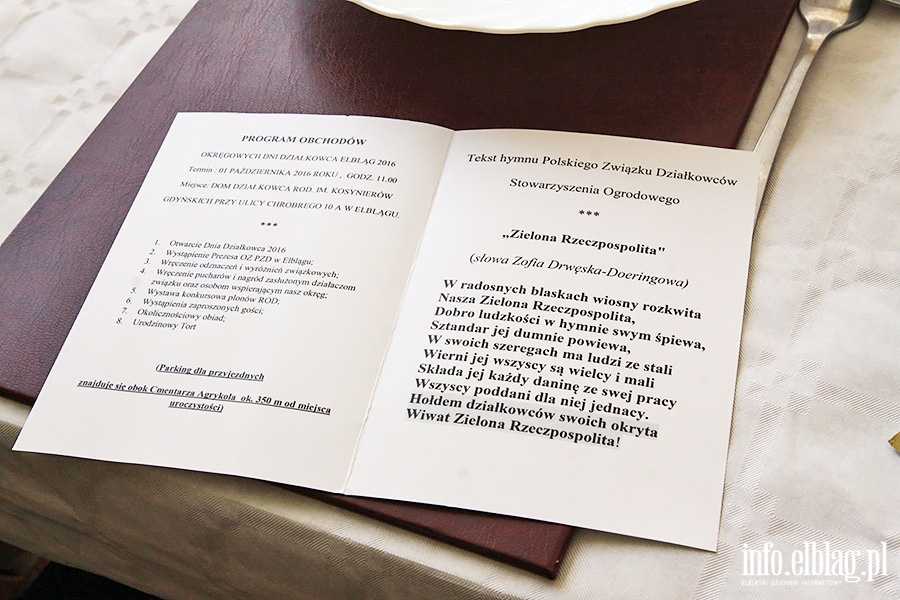 PROGRAM OBCHODÓW
OKRĘGOWYCH DNI DZIAŁKOWCA ELBLĄG 2016
Termin : 01 PAŹDZIERNIKA 2016 ROKU , GODZ. 11.00
Miejsce: DOM DZIAŁKOWCA ROD. IM. KOSYNIERÓW
GDYŃSKICH PRZY ULICY CHROBREGO 10 A W ELBLĄGU.
***
1. Otwarcie Dnia Działkowca 2016
2. Wystąpienie Prezesa OZ PZD w Elblągu;
3. Wręczenie odznaczeń i wyróżnień związkowych;
4. Wręczenie pucharów i nagród zasłużonym działaczom
związku oraz osobom wspierającym nasz okręg;
5. Wystawa konkursowa plonów ROD;
6. Wystąpienia zaproszonych gości;
7. Okolicznościowy obiad;
8. Urodzinowy Tort
(Parking dla przyjezdnych
znajduje się obok Cmentarza Agrykola ok. 350 m od miejsca
uroczystości)
Tekst hymnu Polskiego Związku Działkowców
Stowarzyszenia Ogrodowego
***
„Zielona Rzeczpospolita"
(słowa Zofia Drwęska-Doeringowa)
W radosnych blaskach wiosny rozkwita
Nasza Zielona Rzeczpospolita,
Dobro ludzkości w hymnie swym śpiewa,
Sztandar jej dumnie powiewa,
W swoich szeregach ma ludzi ze stali
Wierni jej wszyscy są wielcy i mali
Składa jej każdy daninę ze swej pracy
Wszyscy poddani dla niej jednacy.
Hołdem działkowców swoich okryta
Wiwat Zielona Rzeczpospolita!
info.elblag.pl
ELBLĄSKI DZIENNIK INTERNETOWY